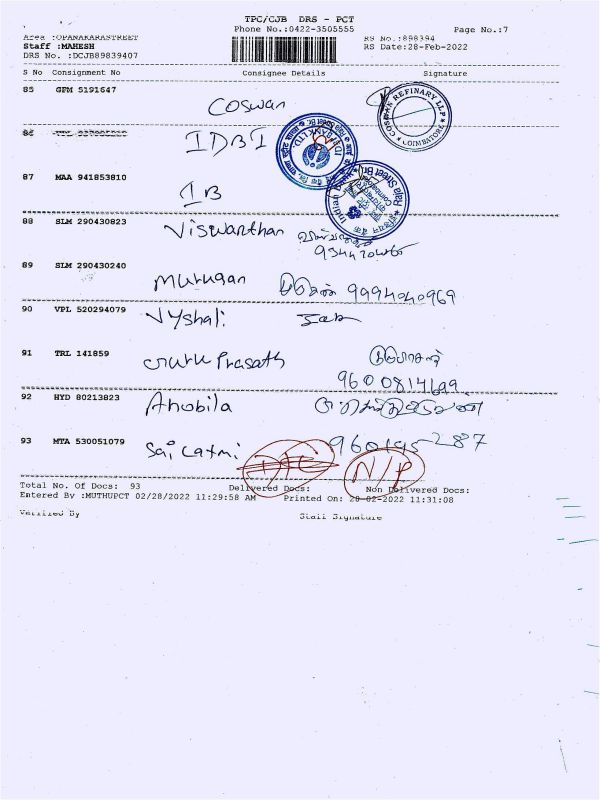 TPC/CJB DRS - PCT
Phone No.:0422-3505555 Page No.:7
Area :OPANAKARASTREET RS No.:898394
Staff :MAHESH RS Date:28-Feb-2022
DRS No. :DCJB89839407
S No Consignment No Consignee Details Signature
85 GPM 5191647
Coswan
COSWAN REFINARY LLP
COIMBATORE
86
IDBI
87 MAA 941853810
IB
Raja Street Br.
88 SLM 290430823 Viswanthan
89 SLM 290430240
Murugan முருகன் 9994040969
90 VPL 520294079 Vyshali
91 TRL 141859
Guru Prasath
9600814699
92 HYD 80213823 Ahobila
93 MTA 530051079 Sai Laxmi 960195287
N/P
Total No. Of Docs: 93 Delivered Docs: Non Delivered Docs:
Entered By :MUTHUPCT 02/28/2022 11:29:58 AM Printed On: 28-02-2022 11:31:08
Verified By Staff Signature